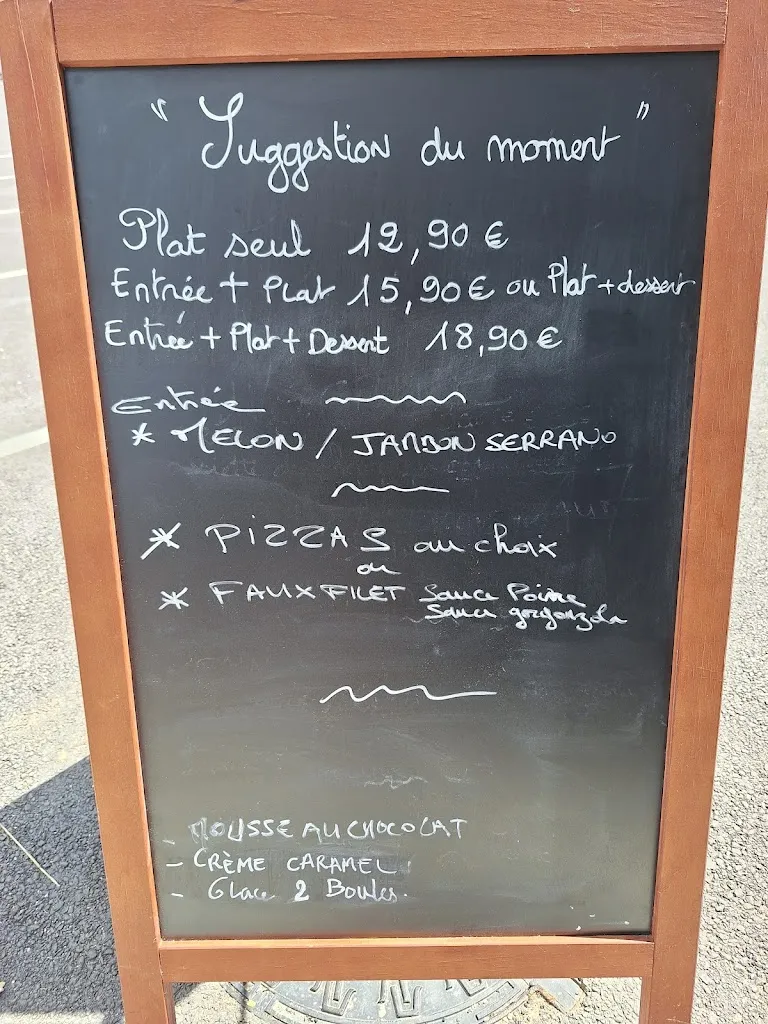 " Suggestion du moment "
Plat seul 12,90 €
Entrée + Plat 15,90 € ou Plat + dessert
Entrée + Plat + Dessert 18,90 €
Entrée
* MELON / JAMBON SERRANO
* PIZZAS au choix
ou
* FAUX FILET Sauce Poivre
Sauce gorgonzola
- MOUSSE AU CHOCOLAT
- CRÈME CARAMEL
- Glace 2 Boules.